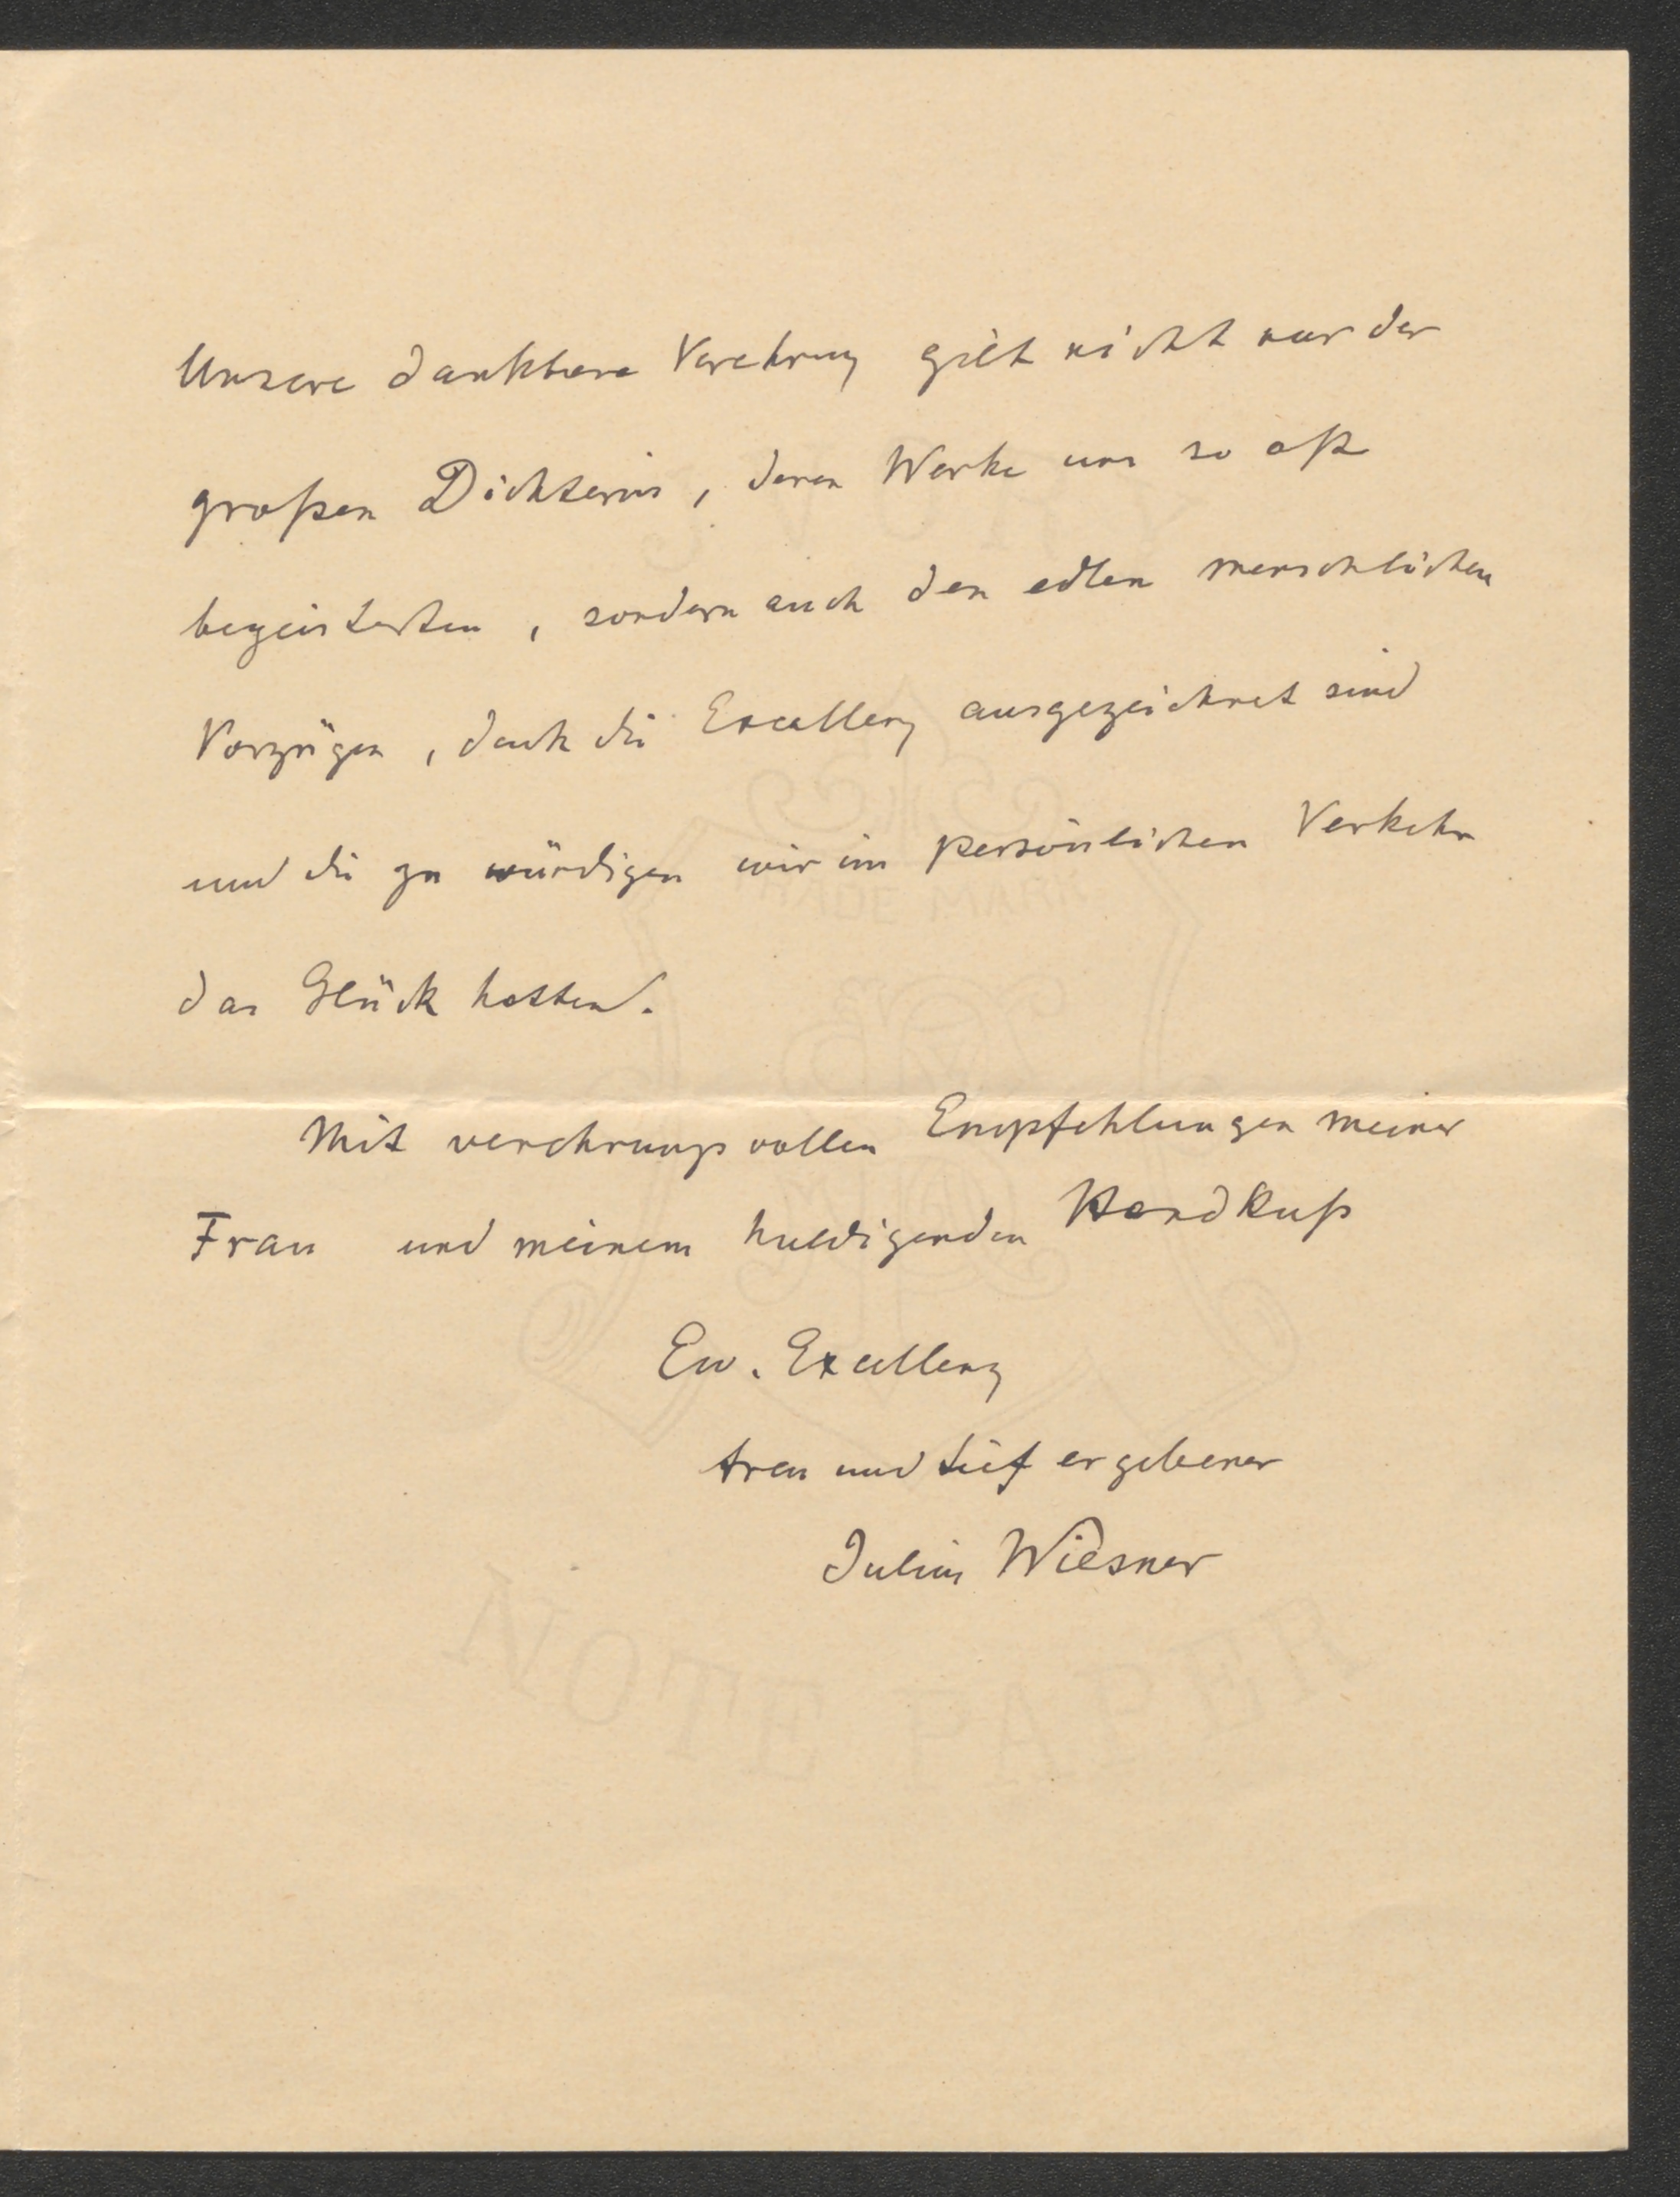 Unsere dankbare Verehrung gilt nicht nur der
großen Dichterin, deren Werke uns so oft
begeisterten, sondern auch den edlen menschlichen
Vorzügen, durch die Excellenz ausgezeichnet sind
und die zu würdigen wir im persönlichen Verkehr
das Glück hatten.
Mit verehrungsvollen Empfehlungen meiner
Frau und meinem huldigenden Handkuß
Ew. Excellenz
treu und tief ergebener
Julius Wiesner
NOTE PAPER